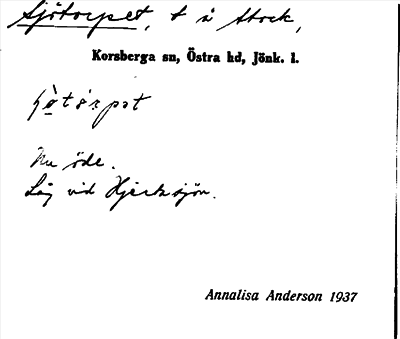 Sjötorpet, t u Stock,
Korsberga sn, Östra hd, Jönk. l.
Nu öde.
Låg vid Hjertsjön.
Annalisa Anderson 1937